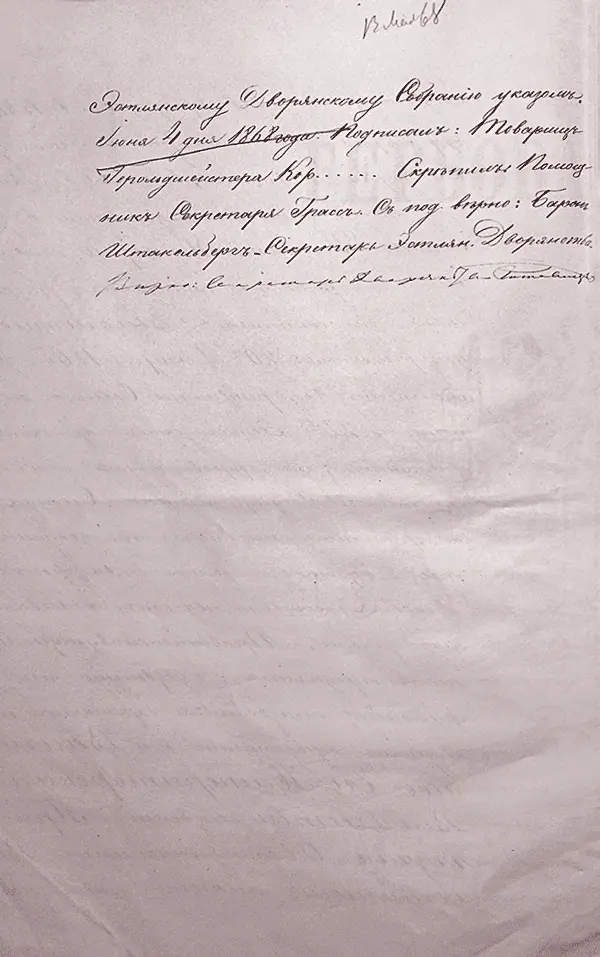 Эстлянскому Дворянскому Собранію указомъ.
Іюня 4 дня 1868 года. Подписалъ: Товарищъ
Герольдмейстера Кор...... Скрѣпилъ: Помощ
никъ Секретаря Грассъ. Съ под. вѣрно: Баронъ
Штакельбергъ - Секретарь Эстлян. Дворянства.
Вѣрно: Секретарь Дворян